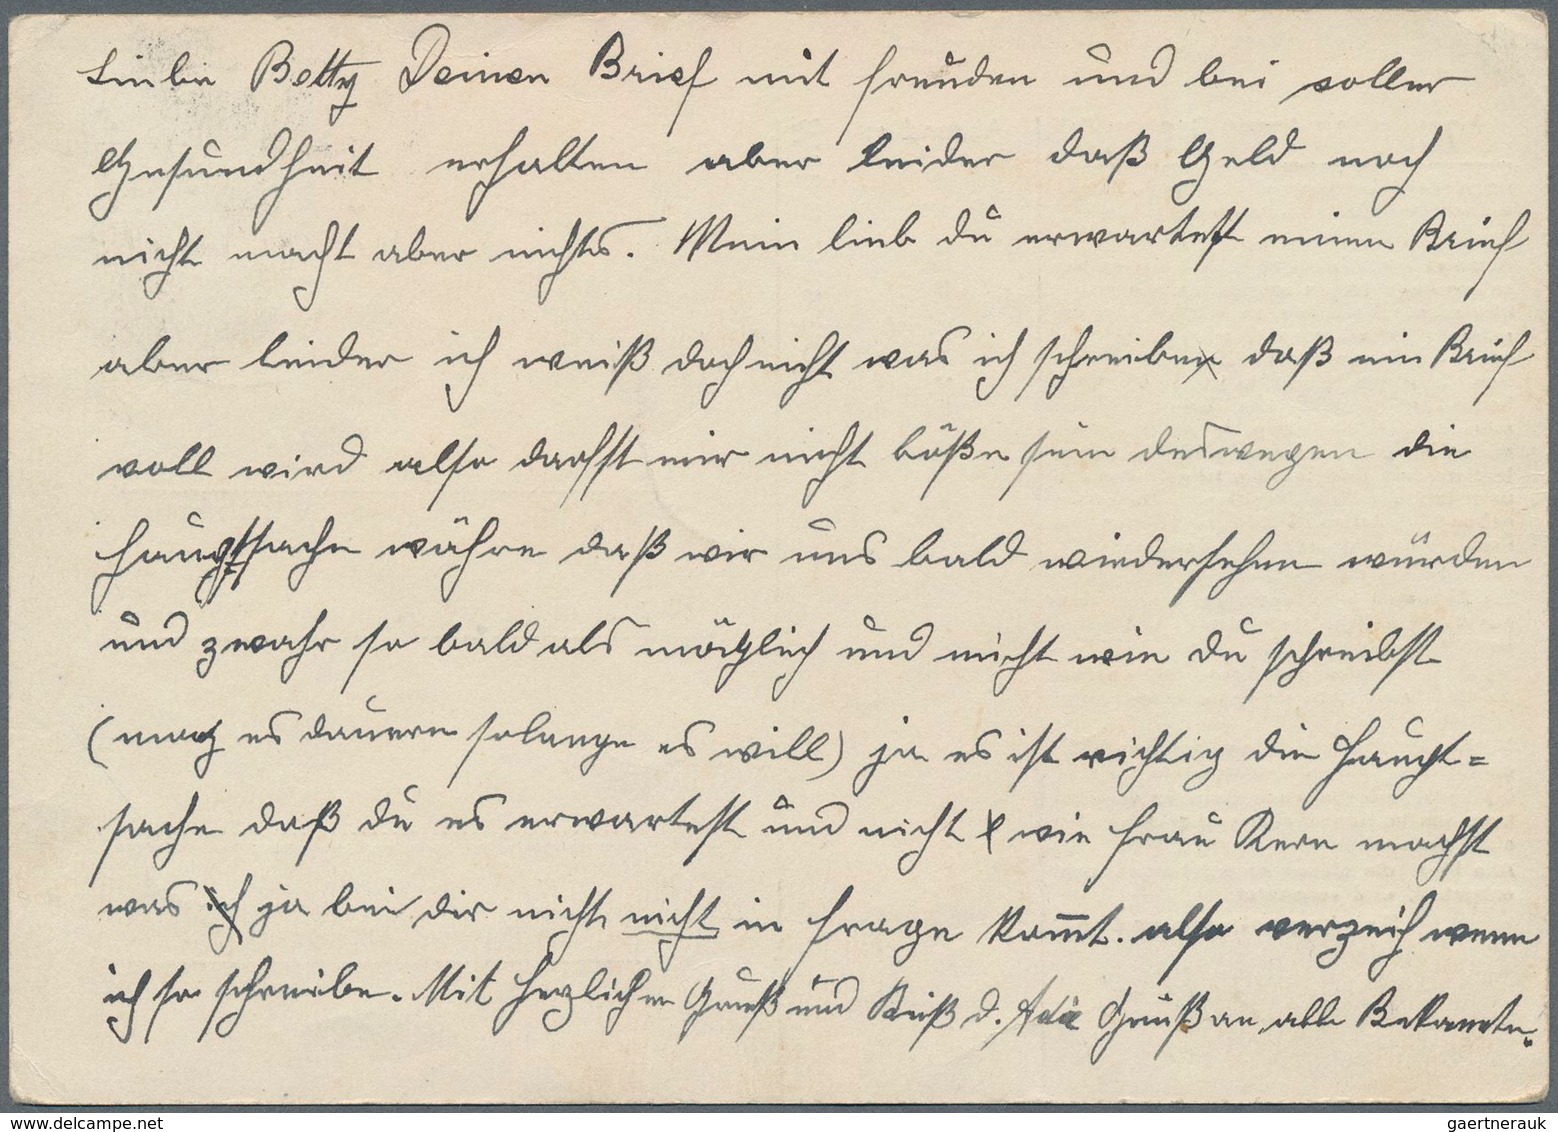 Liebe Betty Deinen Brief mit freuden und bei voller
Gesundheit erhalten aber leider daß Geld noch
nicht macht aber nichts. Mein lieb du erwartest einen Brief
aber leider ich weiß doch nicht was ich schreiben daß ein Brief
voll wird also darfst mir nicht böße sein deswegen die
Hauptsache währe daß wir uns bald wiedersehen würden
und zwahr so bald als möglich und nicht wie du schreibst
(mag es dauern solange es will) ja es ist richtig die Haupt=
sache daß du es erwartest und nicht wie Frau Kern machst
was ich ja bei dir nicht nicht in frage kom̅t. also verzeih wenn
ich so schreibe. Mit herzlichen Gruß und Kuß d. Gruß an alle Bekannte.
gaertnerauk